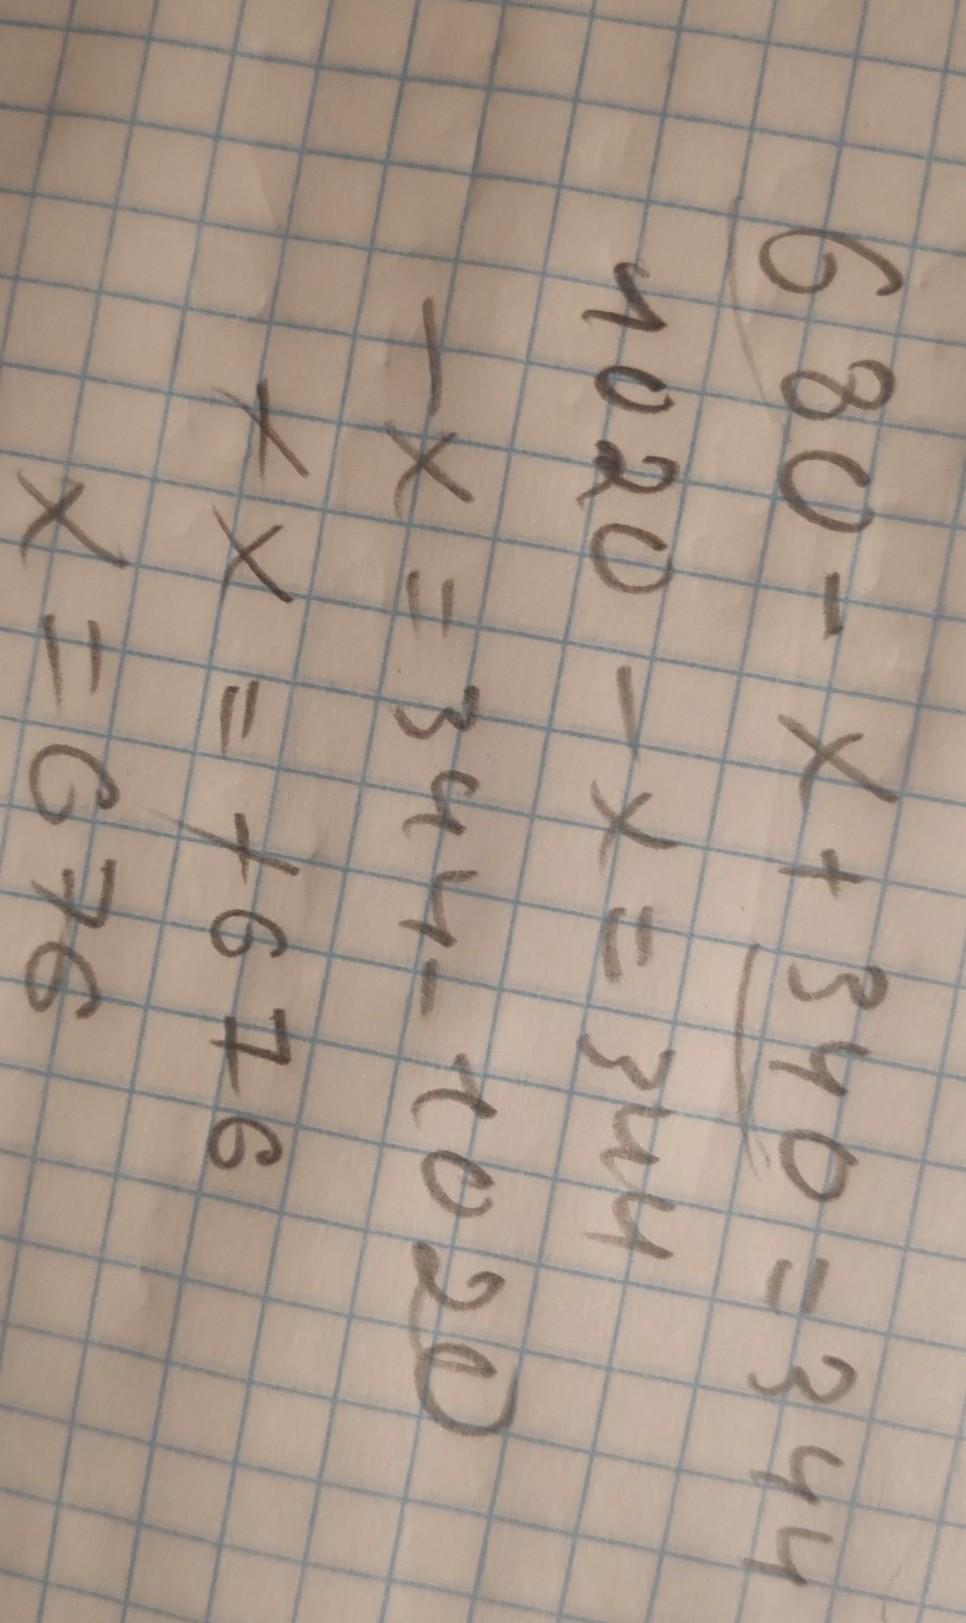 680 - x + 340 = 344
1020 - x = 344
- x = 344 - 1020
+ x = + 676
x = 676